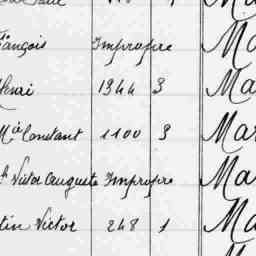 ançois Impropre Ma
Henri 1344 3 Ma
Mie Constant 1100 3 Mar
h Victor Auguste Impropre Ma
tin Victor 248 1 Ma